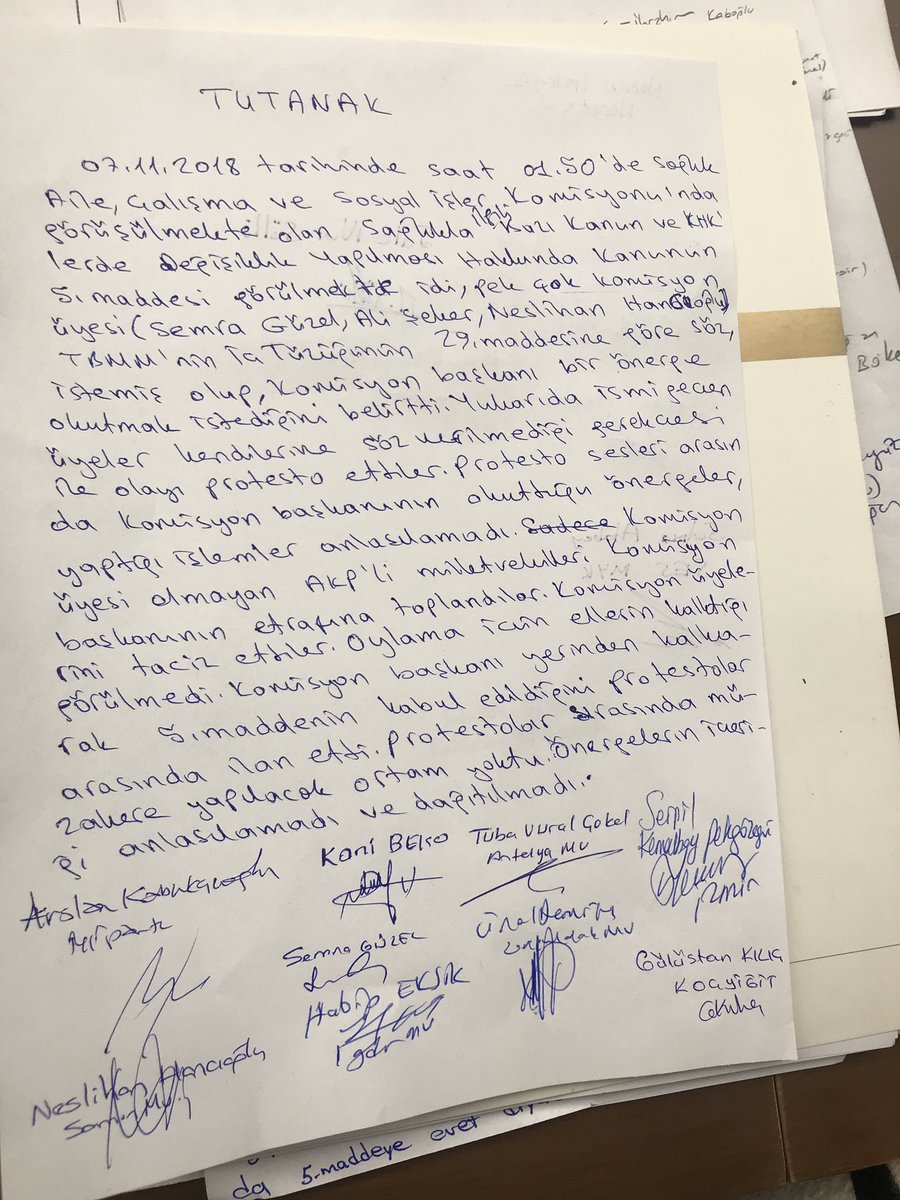 TUTANAK
07.11.2018 tarihinde saat 01.50'de Sağlık
Aile, Çalışma ve Sosyal İşler Komisyonu'nda
görüşülmekte olan Sağlıkla ilgili Bazı Kanun ve KHK'
lerde Değişiklik Yapılması Hakkında Kanunun
5. maddesi görülmekte idi, pek çok komisyon
üyesi (Semra Güzel, Ali Şeker, Neslihan Hancıoğlu)
TBMM'nin İçTüzüğünün 29. maddesine göre söz,
istemiş olup, Komisyon başkanı bir önerge
okutmak istediğini belirtti. Yukarıda ismi geçen
üyeler kendilerine söz verilmediği gerekçesi
ile olayı protesto ettiler. Protesto sesleri arasın
da Komisyon başkanının okuttuğu önergeler,
yaptığı işlemler anlaşılamadı. Sadece Komisyon
üyesi olmayan AKP'li milletvekilleri Komisyon
başkanının etrafına toplandılar. Komisyon üyele-
rini taciz ettiler. Oylama için ellerin kalktığı
görülmedi. Komisyon başkanı yerinden kalka-
rak 5. maddenin kabul edildiğini protestolar
arasında ilan etti. Protestolar arasında mü-
zakere yapılacak ortam yoktu. Önergelerin içeri-
ği anlaşılamadı ve dağıtılmadı.
Arslan Kabukçuoğlu
Kani BEKO
Tuba Vural Çokal
Antalya MV
Serpil
Kemalbay Pekgözegü
İzmir
Semra GÜZEL
Ünal Demirtaş
Zonguldak MV
Habip EKSİK
Iğdır MV
Gülüstan KILIÇ
KOÇYİĞİT
Neslihan Hancıoğlu
Samsun MV
da 5. maddeye evet